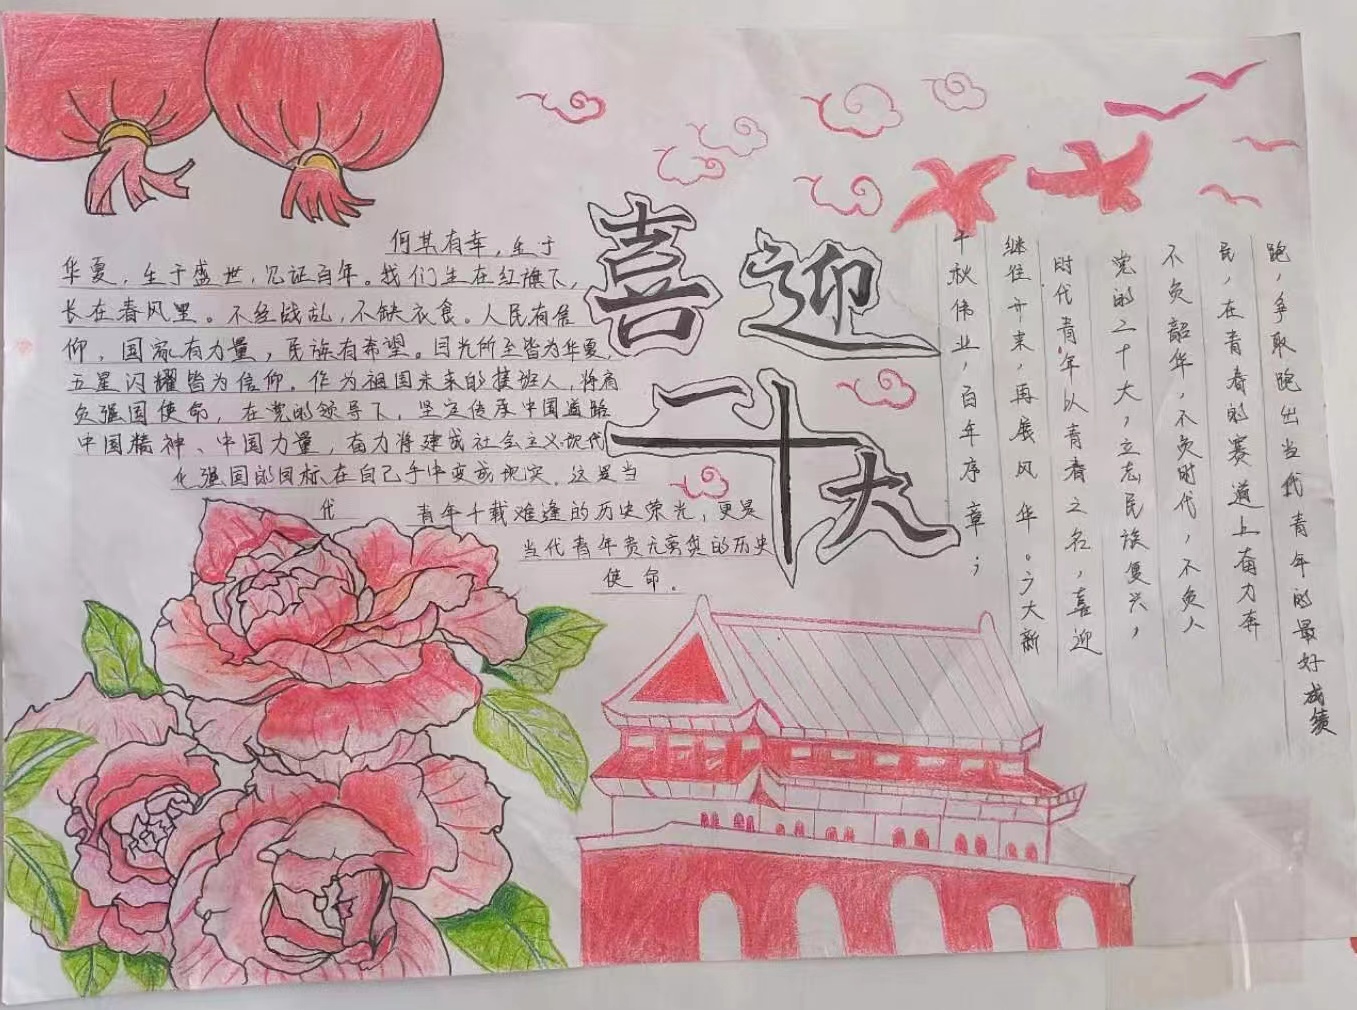 喜迎
二十大
何其有幸，生于
华夏，生于盛世，见证百年。我们生在红旗下，
长在春风里。不经战乱，不缺衣食。人民有信
仰，国家有力量，民族有希望。目光所至皆为华夏，
五星闪耀皆为信仰。作为祖国未来的接班人，将肩
负强国使命，在党的领导下，坚定传承中国道路
中国精神、中国力量，奋力将建成社会主义现代
化强国的目标在自己手中变成现实，这是当
代 青年千载难逢的历史荣光，更是
当代青年责无旁贷的历史
使命。
千秋伟业，百年序章；
继往开来，再展风华。广大新
时代青年以青春之名，喜迎
党的二十大，立志民族复兴，
不负韶华，不负时代，不负人
民，在青春的赛道上奋力奔
跑，争取跑出当代青年的最好成绩